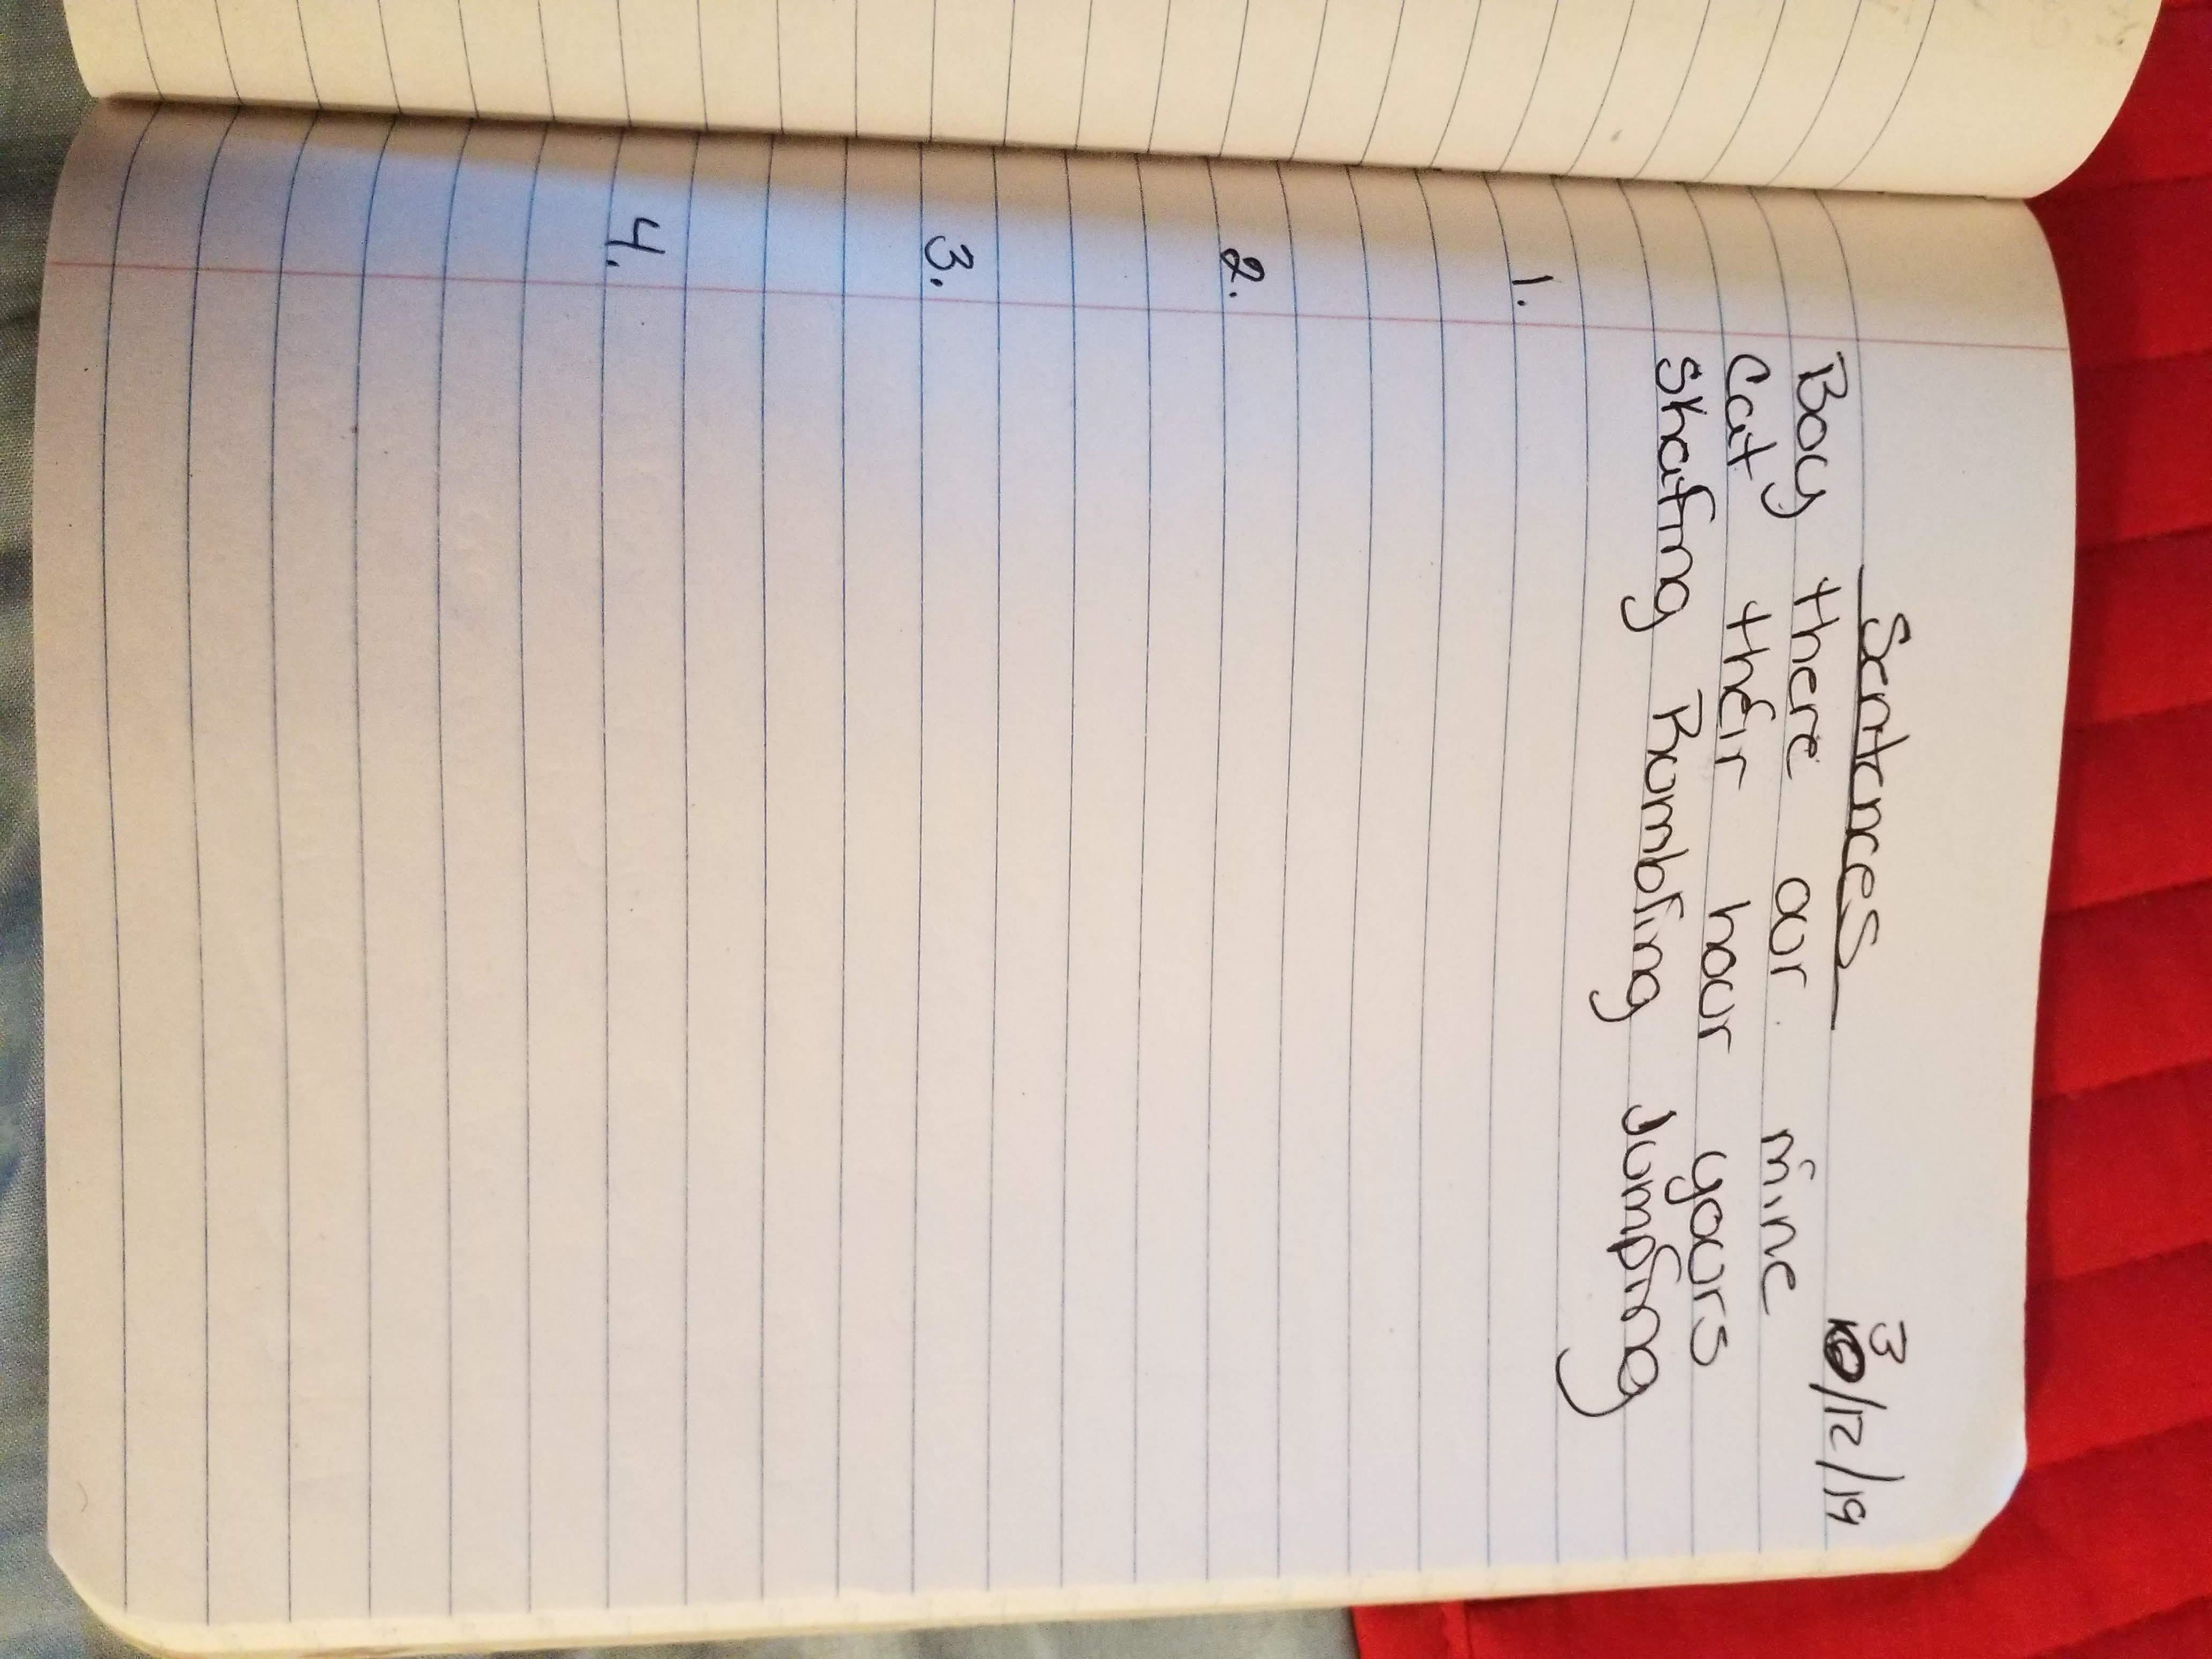 Sentences 3/12/19
Boy there our mine
Cat their hour yours
skating Jumping
1.
2.
3.
4.